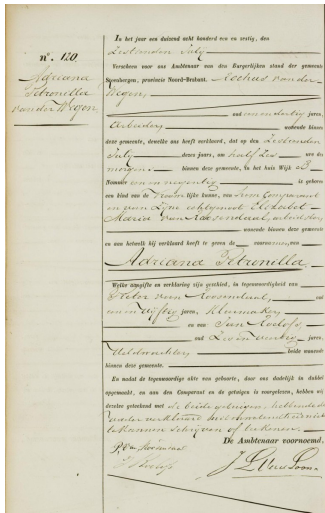 N°. 120.
Adriana
Petronilla
van der Wegen,
In het jaar een duizend acht honderd een en zestig, den
Zestienden July
Verscheen voor ons Ambtenaar van den Burgerlijken stand der gemeente
Steenbergen, provincie Noord-Brabant. Rochus van der
Wegen,
oud een en dertig jaren,
Arbeider, wonende binnen
deze gemeente, dewelke ons heeft verklaard, dat op den Zestienden
July dezes jaars, om half zes ure des
morgens binnen deze gemeente, in het huis Wijk
Nommer een en negentig is geboren
een kind van de Vrouwelijke kunne, van hem Comparant
en zijne echtgenoot Elizabet
Maria van Roosendaal, arbeidster,
wonende binnen deze gemeente
en aan hetwelk hij verklaard heeft te geven de voornamen van
Adriana Petronilla.
Welke aangifte en verklaring zijn geschied, in tegenwoordigheid van
Pieter van Roosendaal, oud
een en vijftig jaren, Kleermaker,
en van Jan Roelofs,
oud jaren,
Veldwachter, beide wonende
binnen deze gemeente.
En nadat de tegenwoordige akte van geboorte, door ons dadelijk in dubbel
opgemaakt, en aan den Comparant en de getuigen is voorgelezen, hebben wij
dezelve geteekend met de beide getuigen, hebbende de
vader verklaard
te kunnen schrijven of teekenen.
De Ambtenaar voornoemd,
P. van Roosendaal
J Roelofs